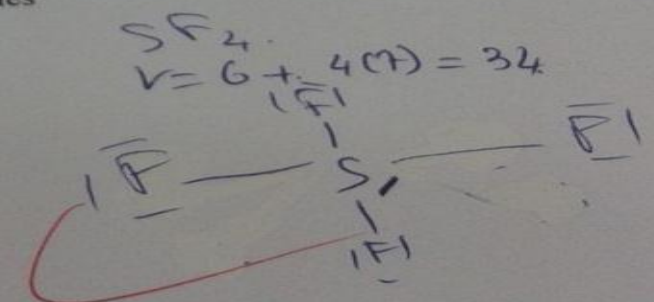 SF4.
V = 6 + 4(7) = 34
F
F S F
F